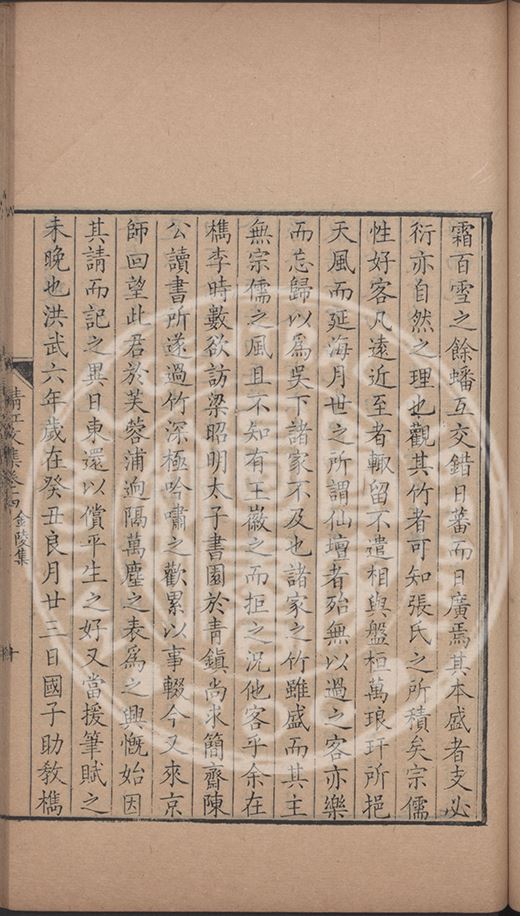 霜百雪之餘蟠互交錯日蕃而日廣焉其本盛者支必
衍亦自然之理也觀其竹者可知張氏之所積矣宗儒
性好客凡遠近至者輙留不遣相與盤桓萬琅玕所挹
天風而延海月世之所謂仙壇者殆無以過之客亦樂
而忘歸以爲吳下諸家不及也諸家之竹雖盛而其主
無宗儒之風且不知有王徽之而拒之况他客乎余在
檇李時數欲訪梁昭明太子書園於青鎮尚求簡齋陳
公讀書所遂過竹深極吟嘯之歡累以事輟今又來京
師回望此君於芙蓉浦逈隔萬塵之表爲之興慨始因
其請而記之異日東還以償平生之好又當援筆賦之
未晚也洪武六年歲在癸丑良月廿三日國子助教檇
清江文集卷四 金陵集 十